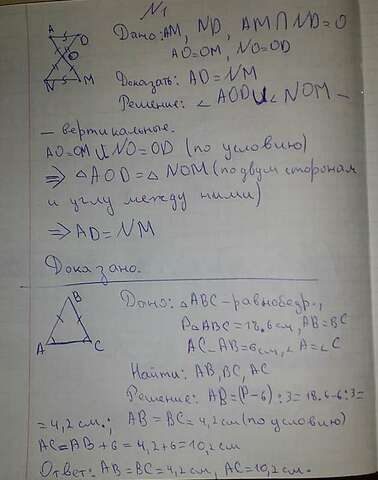 N1
A D Дано: AM, ND, AM∩ND=O
O AO=OM, NO=OD
N M Доказать: AD=NM
Решение: ∠ AOD и ∠ NOM –
– вертикальные.
AO=OM и NO=OD (по условию)
⇒ △ AOD = △ NOM (по двум сторонам
и углу между ними)
⇒ AD=NM
Доказано.
B Дано: △ABC – равнобедр.,
P△ABC = 18.6 см, AB=BC
A C AC-AB=6см, ∠ A=∠ C
Найти: AB, BC, AC
Решение: AB=(P-6):3=18.6-6:3=
=4,2 см.; AB=BC=4,2 см (по условию)
AC=AB+6=4,2+6=10,2 см
Ответ: AB=BC=4,2 см, AC=10,2 см.